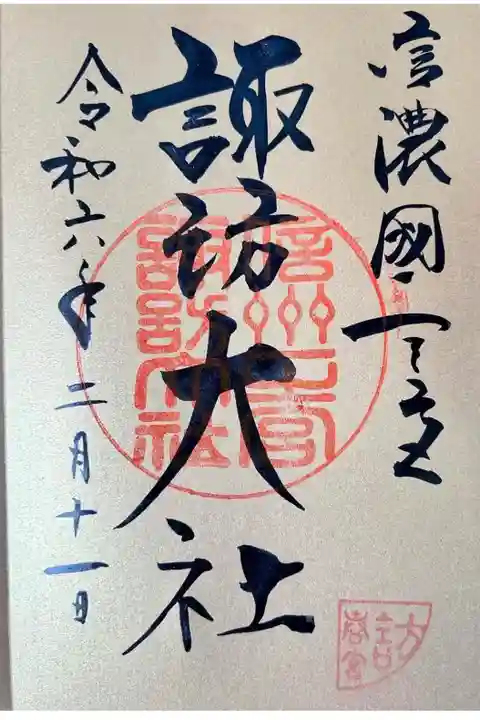 信濃國一之宮
諏訪大社
令和六年二月十一日
信州一宮
諏訪大社